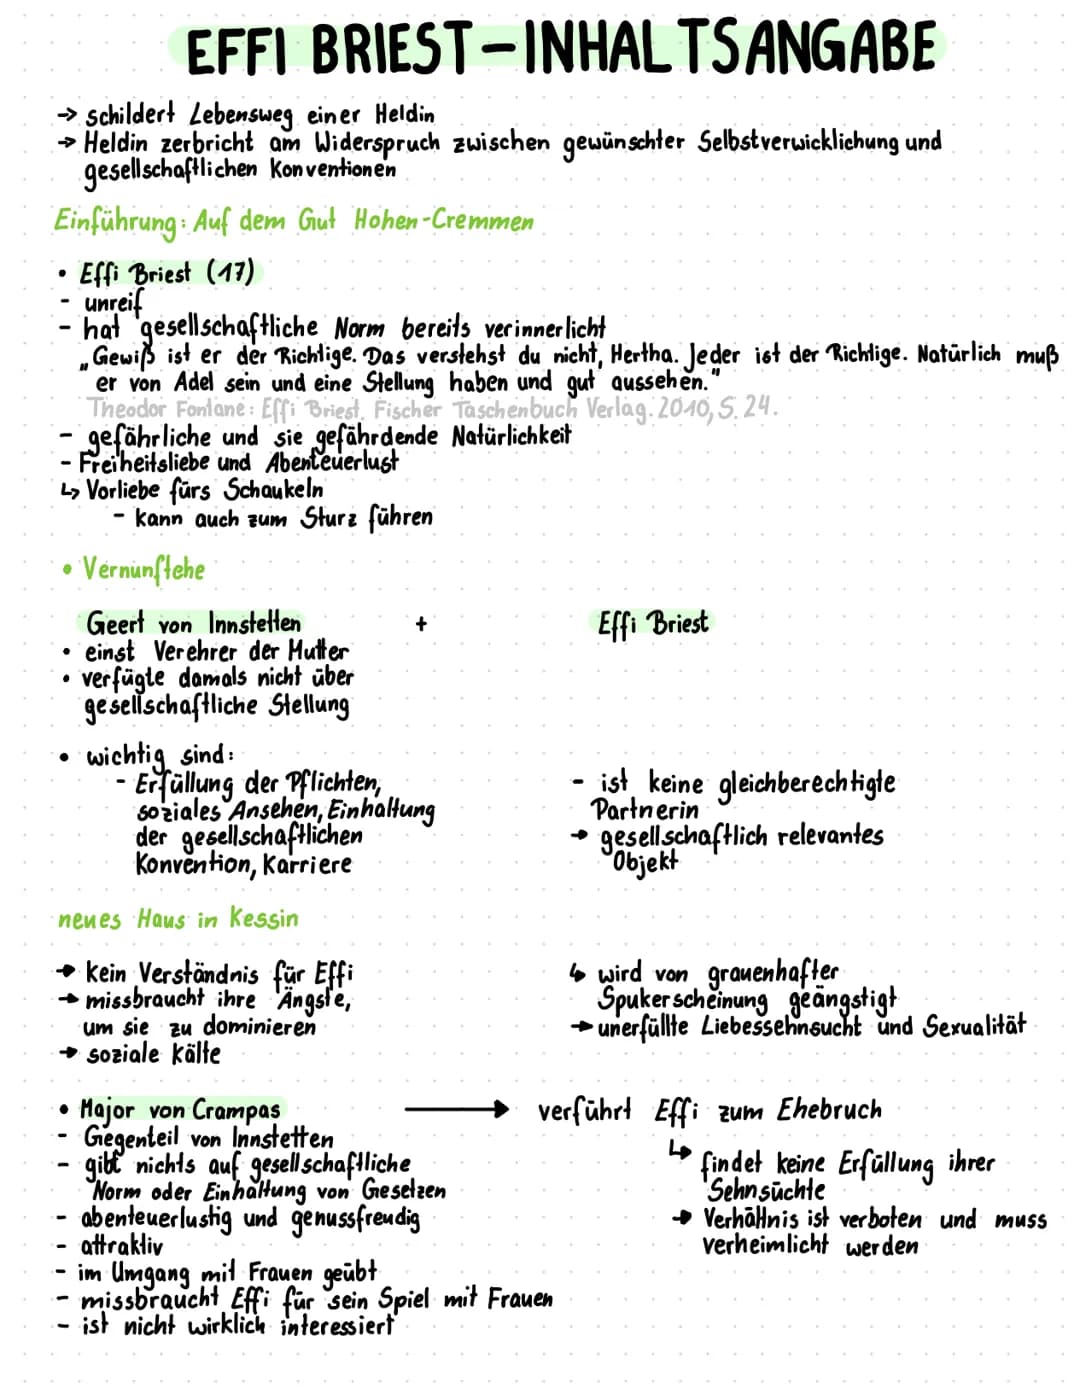 EFFI BRIEST-INHALTSANGABE
→ schildert Lebensweg einer Heldin
→ Heldin zerbricht am Widerspruch zwischen gewünschter Selbstverwicklichung und
gesellschaftlichen Konventionen
Einführung: Auf dem Gut Hohen-Cremmen
• Effi Briest (17)
- unreif
- hat gesellschaftliche Norm bereits verinnerlicht
„Gewiß ist er der Richtige. Das verstehst du nicht, Hertha. Jeder ist der Richtige. Natürlich muß
er von Adel sein und eine Stellung haben und gut aussehen."
Theodor Fontane: Effi Briest, Fischer Taschenbuch Verlag. 2010, S. 24.
- gefährliche und sie gefährdende Natürlichkeit
- Freiheitsliebe und Abenteuerlust
↳ Vorliebe fürs Schaukeln
- kann auch zum Sturz führen
• Vernunftehe
Geert von Innstetten + Effi Briest
• einst Verehrer der Mutter
• verfügte damals nicht über
gesellschaftliche Stellung
• wichtig sind:
- Erfüllung der Pflichten,
soziales Ansehen, Einhaltung
der gesellschaftlichen
Konvention, Karriere
- ist keine gleichberechtigte
Partnerin
→ gesellschaftlich relevantes
Objekt
neues Haus in Kessin
→ kein Verständnis für Effi
→ missbraucht ihre Ängste,
um sie zu dominieren
→ soziale Kälte
↳ wird von grauenhafter
Spukerscheinung geängstigt
→ unerfüllte Liebessehnsucht und Sexualität
• Major von Crampas → verführt Effi zum Ehebruch
- Gegenteil von Innstetten
- gibt nichts auf gesellschaftliche
Norm oder Einhaltung von Gesetzen
- abenteuerlustig und genussfreudig
- attraktiv
- im Umgang mit Frauen geübt
- missbraucht Effi für sein Spiel mit Frauen
- ist nicht wirklich interessiert
↳ findet keine Erfüllung ihrer
Sehnsüchte
→ Verhältnis ist verboten und muss
verheimlicht werden